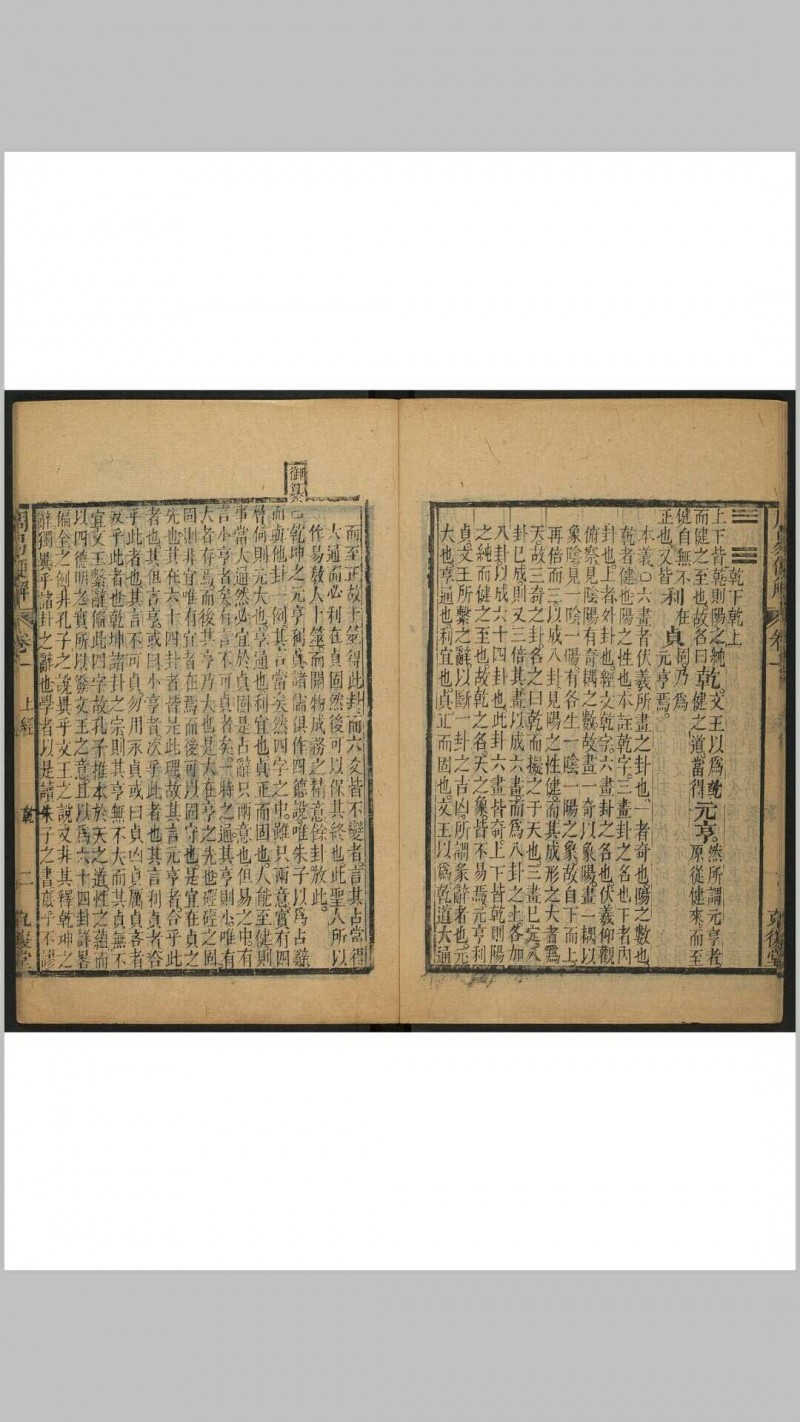 乾下乾上
上下皆乾則陽之純乾文王以為乾元亨然所謂元亨者
而健之至也故名曰乾健之道當得元亨原從健來而至
健自無不利在貞何乃為
正也又皆利貞元亨焉
本義○六畫者伏羲所畫之卦也一者奇也陽之數也
乾者健也陽之性也本註乾字三畫卦之名也下者內
卦也上者外卦也經文乾字六畫卦之名也伏羲仰觀
俯察見陰陽有奇耦之數故畫一奇以象陽畫一耦以
象陰見一陰一陽有各生一陰一陽之象故自下而上
再倍而三以成八卦見陽之性健而其成形之大者為
天故三奇之卦名之曰乾而擬之于天也三畫已定八
卦已成則又三倍其畫以成六畫而為八卦之上各加
八卦以成六十四卦也此卦六畫皆奇上下皆乾則陽
之純而健之至也故乾之名天之象皆不易焉元亨利
貞文王所繫之辭以斷一卦之吉凶所謂彖辭者也元
大也亨通也利宜也貞正而固也文王以為乾道大通
而至正故于筮得此卦而六爻皆不變者言其占當得
大通而必利在貞固然後可以保其終也此聖人所以
作易教人卜筮而開物成務之精意餘卦放此
御纂
乾坤之元亨利貞諸儒俱作四德說唯朱子以為占辭
而與他卦一例其言當矣然四字之中雖只兩意實有四
層何則元大也亨通也利宜也貞正而固也人能至健則
事當大通然必宜於貞固是占辭只兩意也但易之中有
言小亨者矣有言不可貞者矣一時之通其亨則小唯有
大者存焉而後其亨乃大也是大在亨之先也硜硜之
固則非宜唯有宜者在焉而後可以固守也是宜在貞之
先也其在六十四卦者皆是此理故其言元亨者合乎此
者也其但言亨或曰小亨者次乎此者也其言利貞者咨
乎此者也其言不可貞勿用永貞或曰貞凶貞厲貞吝者
反乎此者也乾坤諸卦之宗則其亨無不大而其貞無不
宜文王繫辭備此四字故孔子推本於天之道性之蘊而
以四德明之實所以發文王之意且以為六十四卦詳畧
偏全之例非孔子之說異乎文王之說又非其釋乾坤之
辭獨異乎諸卦之辭也學者以是讀朱子之書庶乎不謬
卷一
上經
乾
二